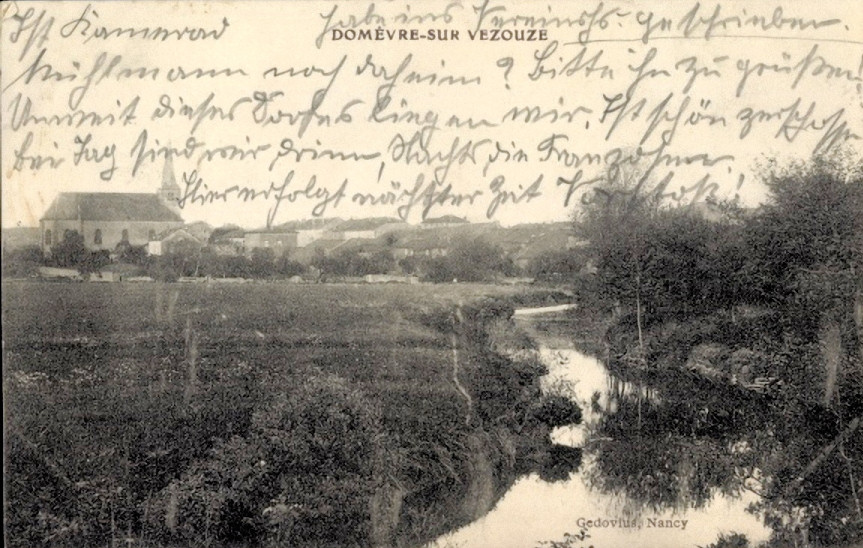 Ist Kamerad habe ins Vereinshs. geschrieben.
DOMÈVRE-SUR VEZOUZE
Mühlmann noch daheim? Bitte ihn zu grüßen!
Unweit dieses Dorfes liegen wir, Ist schön zerschossen
Bei Tag sind wir drinn, Nachts die Franzosen
Hier erfolgt nächster Zeit Vorstoß!
Gedovius, Nancy